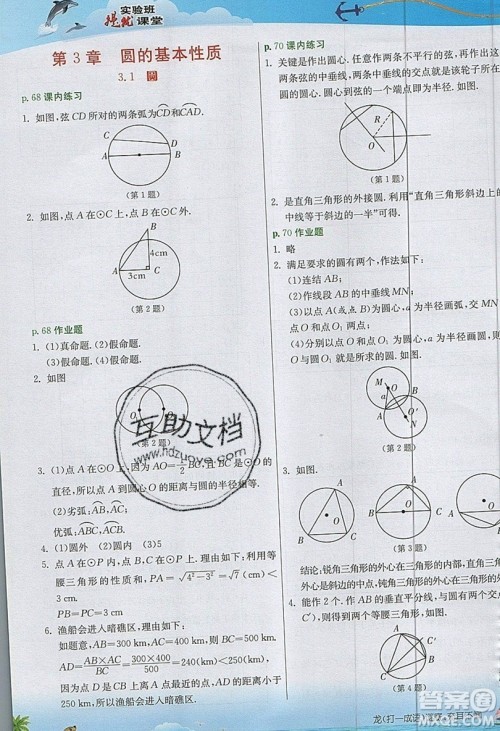 实验班
提优课堂
第3章 圆的基本性质
3.1 圆
p.68课内练习
1. 如图,弦CD所对的两条弧为CD和CAD.
C
D
A
B
(第1题)
2. 如图,点A在⊙C上,点B在⊙C外.
B
4cm
A
3cm
C
(第2题)
p.68作业题
1. (1)真命题. (2)假命题.
(3)假命题. (4)假命题.
2. 如图
(第2题)
3. (1)点A在⊙O上,因为AO=1/2BC,且BC是⊙O的
直径,所以点A到圆心O的距离与圆的半径相等.
(2)劣弧:AB,AC;
优弧:ABC,ACB.
4. (1)圆外 (2)圆内 (3)5
5. 点A在⊙P上.理由如下:由题意,利用等
腰三角形的性质,PA=√4²-3²=√7(cm),
PB=PC=3cm.
6. 渔船会进入暗礁区.理由如下:
如题意,AB=300 km,AC=400 km,BC=500 km,
AD=AB×AC/BC=300×400/500=240(km).
因为AD<250 km,
所以渔船会进入暗礁区.
p.70课内练习
1. 关键是作出圆心,然后作两条不平行的弦,再作出这
两条弦的中垂线,中垂线的交点就是该轮子所在圆的
圆心.圆心到弦的一个端点即为半径.如图.
R
O
(第1题)
2. 是直角三角形的外接圆.利用“直角三角形斜边上的
中线等于斜边的一半”可得.
p.70作业题
1. 略
2. 满足要求的圆有两个,作法如下:
(1)连结AB,
(2)作线段AB的中垂线MN,
(3)以点A(或点B)为圆心,a为半径画弧,交MN于
(4)分别以点O,O'为圆心,
即为所求.如图.
M
O
a
A
B
O'
N
(第2题)
3. 如图.
O
O
O
(第3题)
结论:锐角三角形的外心在三角形的内部,直角三角形
外心是斜边的中点,钝角三角形的外心在三角形的外部
4. 能作2个.作AB的垂直平分线,与圆
C'),得到的△
C'
C
A
B
(第4题)
互助文档
www.hdzuoye.com
答案圈
MXQE.COM